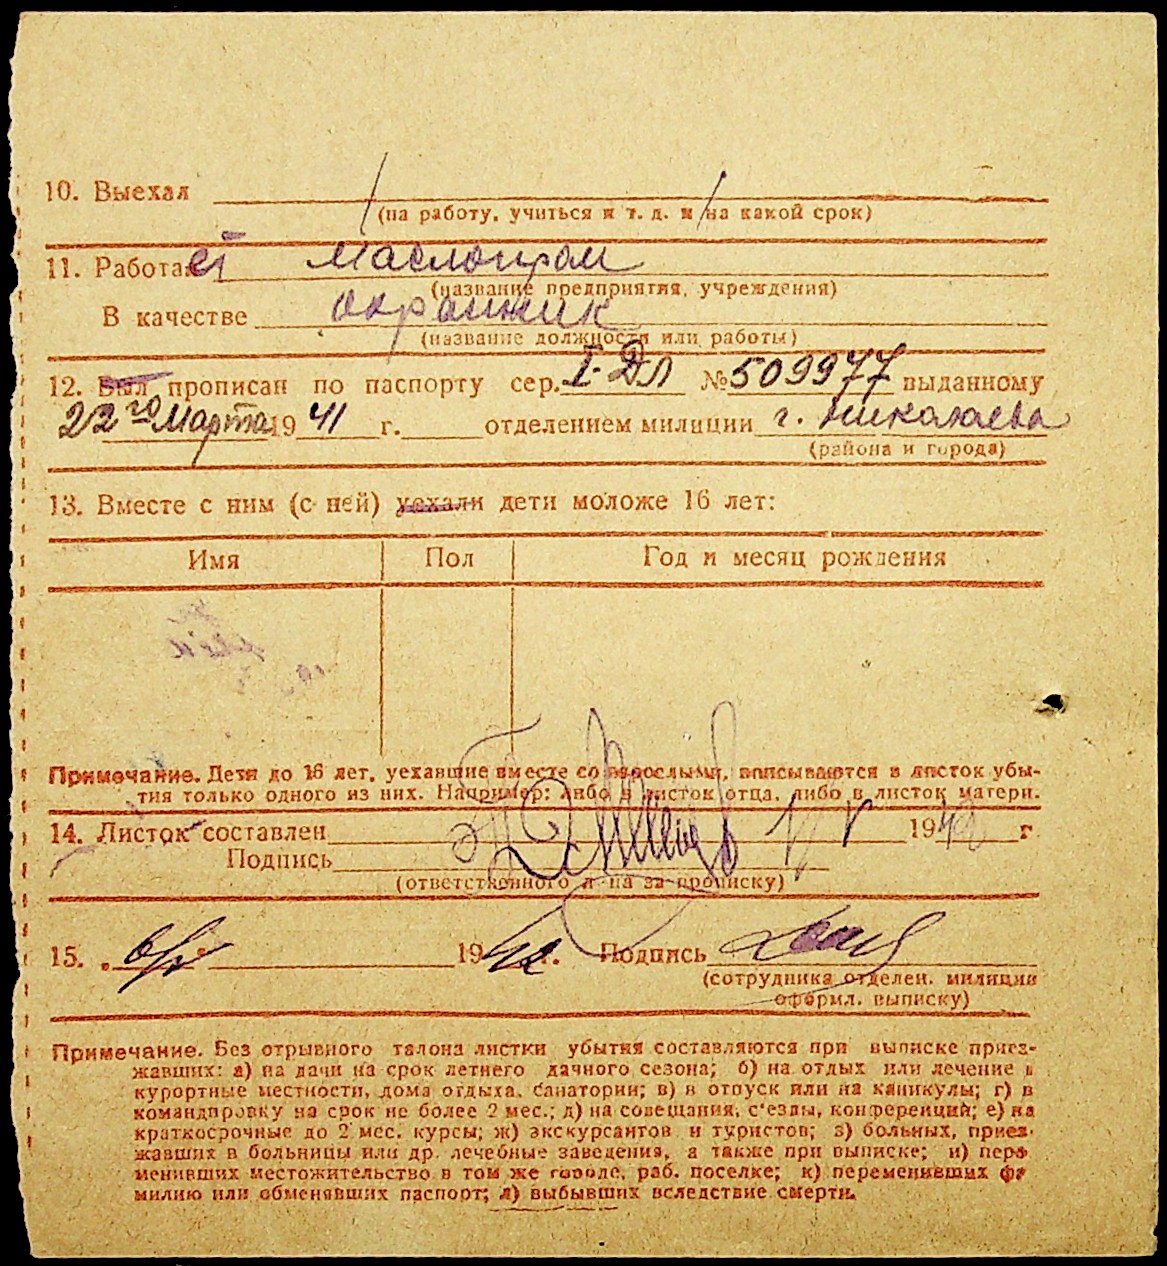 10. Выехал
(на работу, учиться и т. д. и на какой срок)
11. Работает Маслопром
(название предприятия, учреждения)
В качестве охранник
(название должности или работы)
12. Был прописан по паспорту сер. I-ДЛ № 509977 выданному
22го марта 1941 г. отделением милиции г. Николаева
(района и города)
13. Вместе с ним (с ней) уехали дети моложе 16 лет:
Имя Пол Год и месяц рождения
Примечание. Дети до 16 лет, уехавшие вместе со взрослыми, вписываются в листок убы-
тия только одного из них. Например: либо в листок отца, либо в листок матери.
14. Листок составлен 1942 г
Подпись
(ответственного л-ца за прописку)
15. 6/V 1942. Подпись
(сотрудника отделен. милиции
оформл. выписку)
Примечание. Без отрывного талона листки убытия составляются при выписке приез-
жавших: а) на дачи на срок летнего дачного сезона; б) на отдых или лечение в
курортные местности, дома отдыха, санатории; в) в отпуск или на каникулы; г) в
командировку на срок не более 2 мес.; д) на совещания, с'езды, конференций; е) на
краткосрочные до 2 мес. курсы; ж) экскурсантов и туристов; з) больных, приез-
жавших в больницы или др. лечебные заведения, а также при выписке; и) пере
менивших местожительство в том же городе, раб. поселке; к) переменивших фа
милию или обменявших паспорт; л) выбывших вследствие смерти.